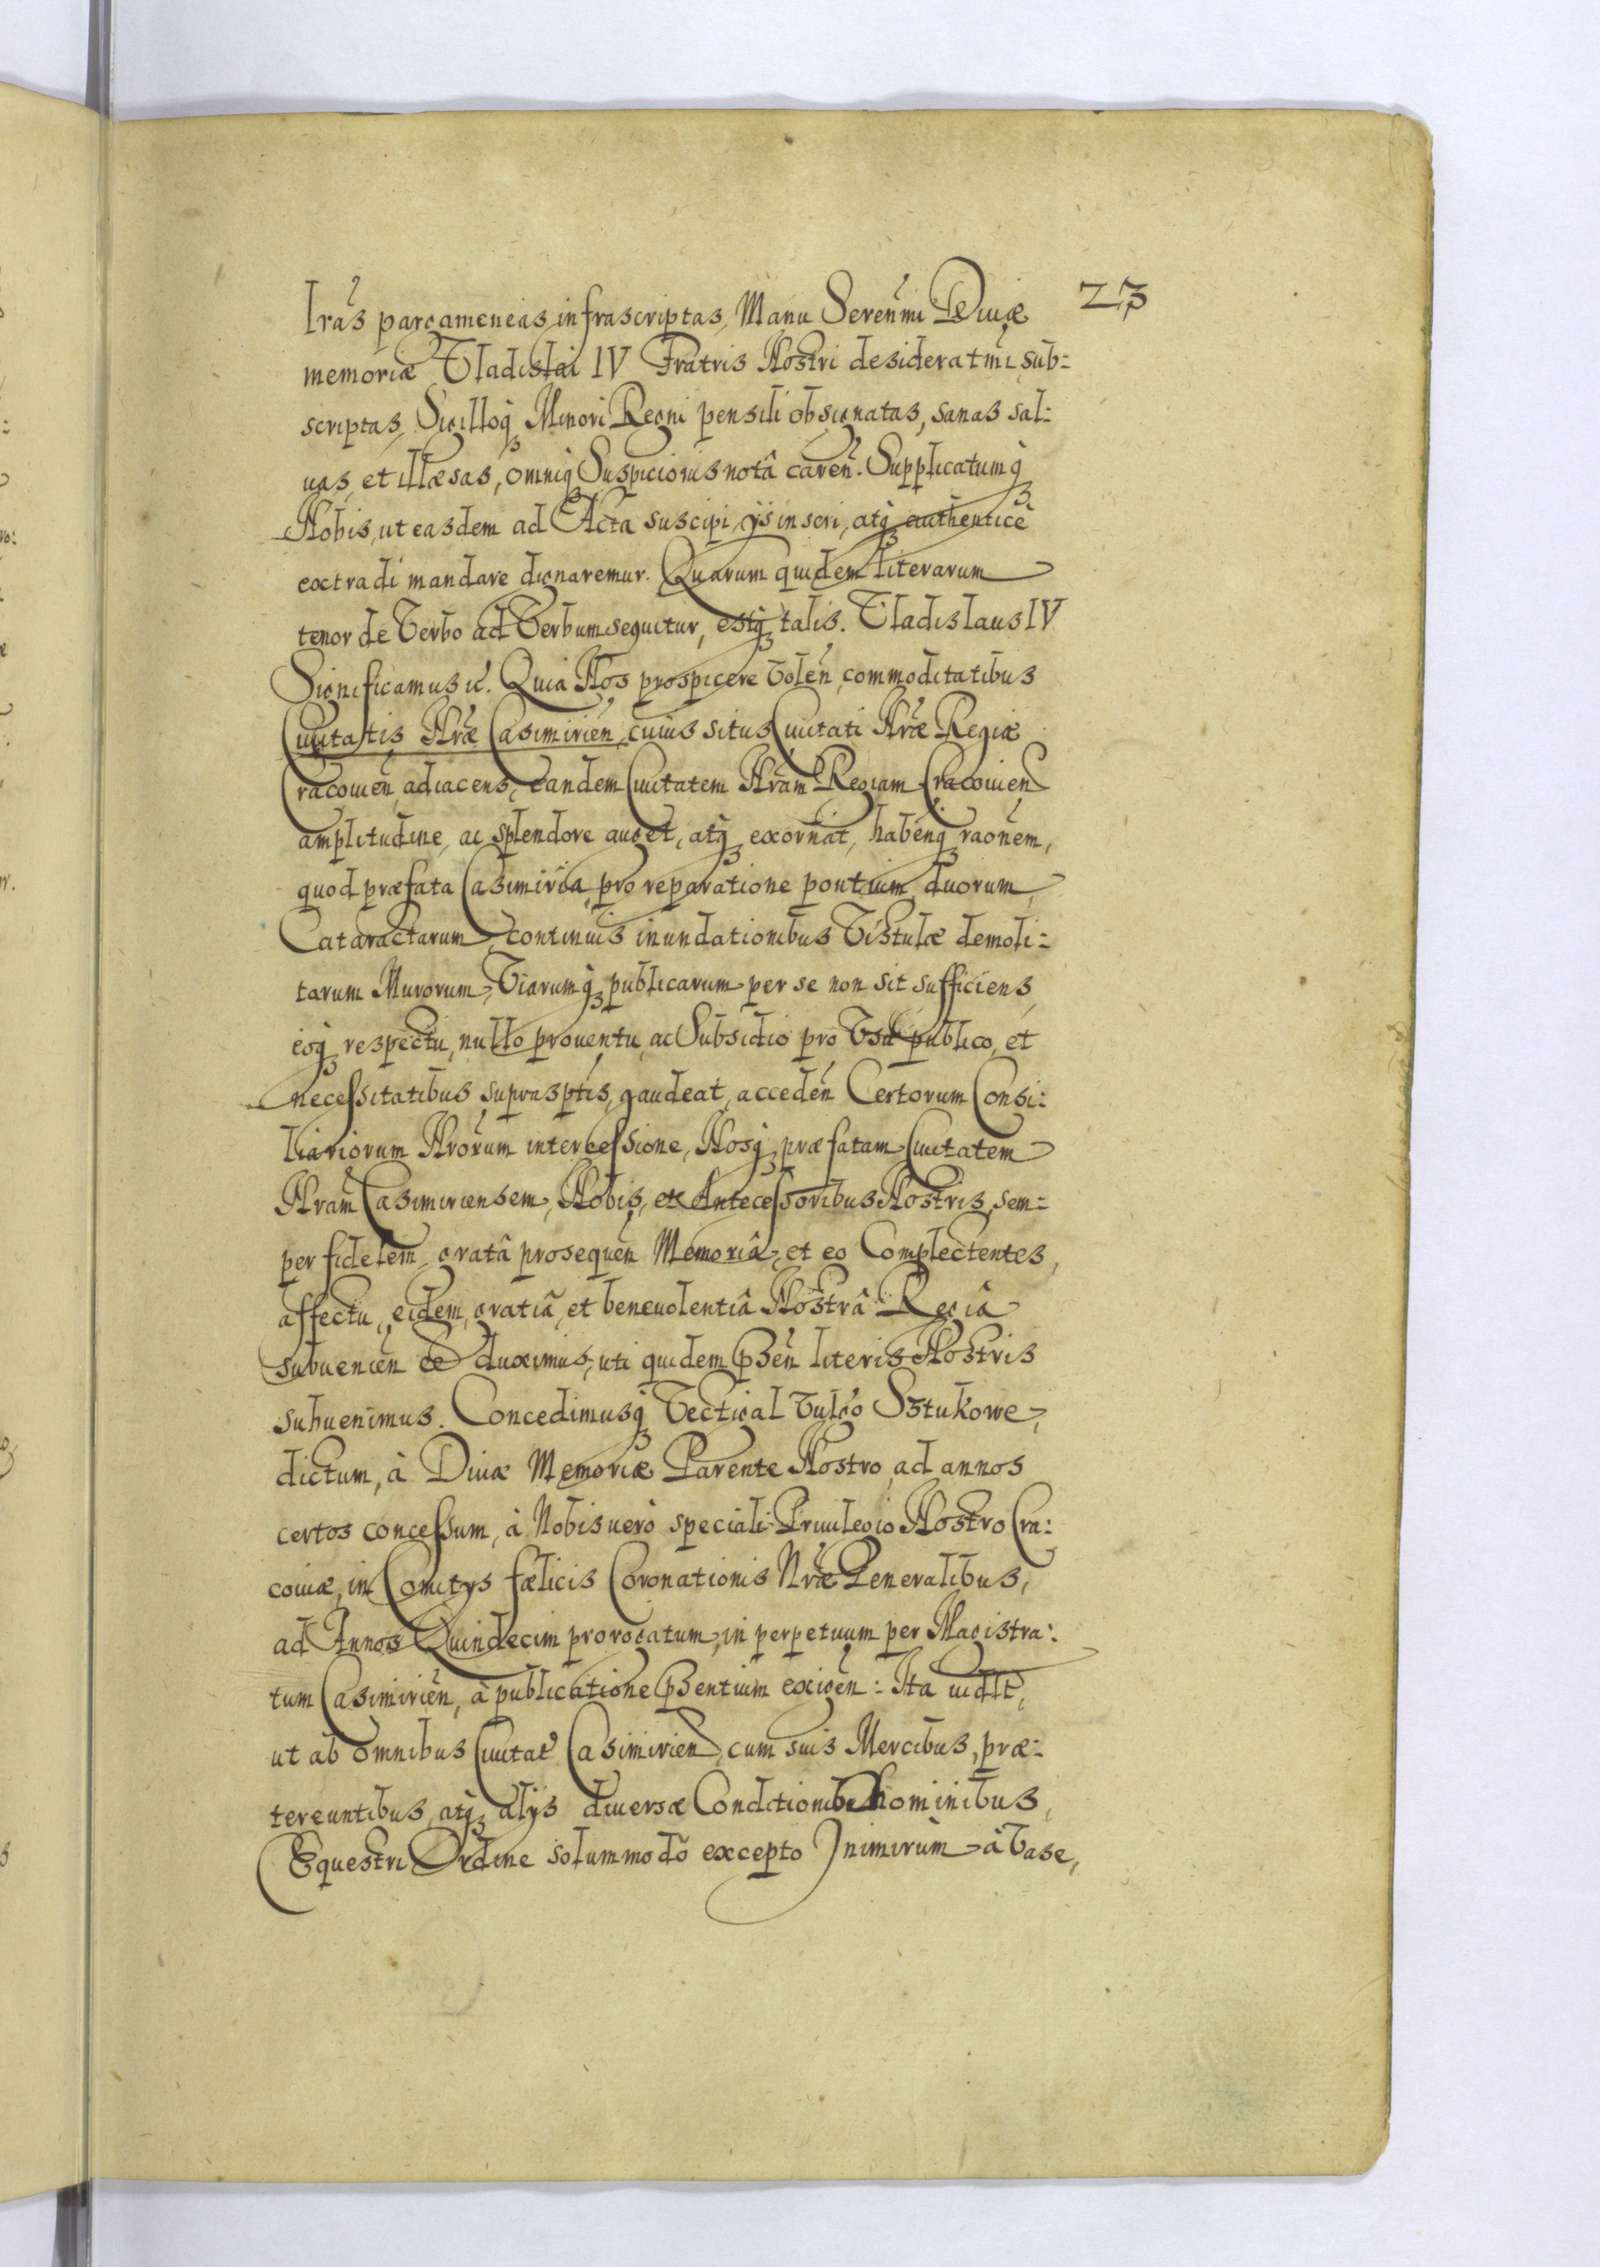 23
lras pargameneas infrascriptas, Manu Serenmi Diuæ
memoriæ Vladislai IV Fratris Nostri desideratmi sub:
scriptas, Sigilloq Minori Regni pensili obsignatas, sanas sal:
uas, et illæsas, omniq Suspicionis notâ caren. Supplicatumq
Nobis, ut easdem ad Acta suscipi, ijs inscri, atq authenticè
extradi mandare dignaremur. Quarum quidem literarum
tenor de Verbo ad Verbum sequitur, estq talis. Vladislaus IV
Significamus &c. Quia Nos prospicere Volen, commoditatibus
Ciuitatis Nræ Casimirien, cuius situs Ciuitati Nræ Regiæ
Cracouien, adiacens, eandem Ciuitatem Nram Regiam Cracouien
amplitudine, ac splendore auget, atq exornat, habenq raonem,
quod præfata Casimiria, pro reparatione pontium duorum,
Cataractarum, continuis inundationibus Vistulæ demoli:
tarum Murorum, Viarumq publicarum per se non sit sufficiens,
eoq respectu, nullo prouentu, ac Subsidio pro Vsu publico, et
necessitatibus suprasptis, gaudeat, acceden Certorum Consi:
liariorum Nrorum intercessione, Nosq præfatam Ciuitatem
Nram Casimiriensem, Nobis, et Antecessoribus Nostris, sem:
per fidelem, gratâ prosequen Memoriâ, et eo Complectentes,
affectu, eidem, gratiâ, et beneuolentiâ Nostrâ Regiâ
subuenien ee duximus, uti quidem psen literis Nostris
subuenimus. Concedimusq Vectigal Vulgo Sztukowe,
dictum, à Diuæ Memoriæ Parente Nostro, ad annos
certos concessum, à Nobis uerò speciali Priuilegio Nostro Cra:
couiæ, in Comitijs fælicis Coronationis Nræ Generalibus,
ad Annos Quindecim prorogatum, in perpetuum per Magistra:
tum Casimirien, à publicatione psentium exigen: Ita uidlt,
ut ab omnibus Ciuitat Casimirien, cum suis Mercibus, præ:
tereuntibus, atq alijs diuersæ Conditionibu hominibus,
Equestri Ordine solummodò excepto Inimirùm à Vase,